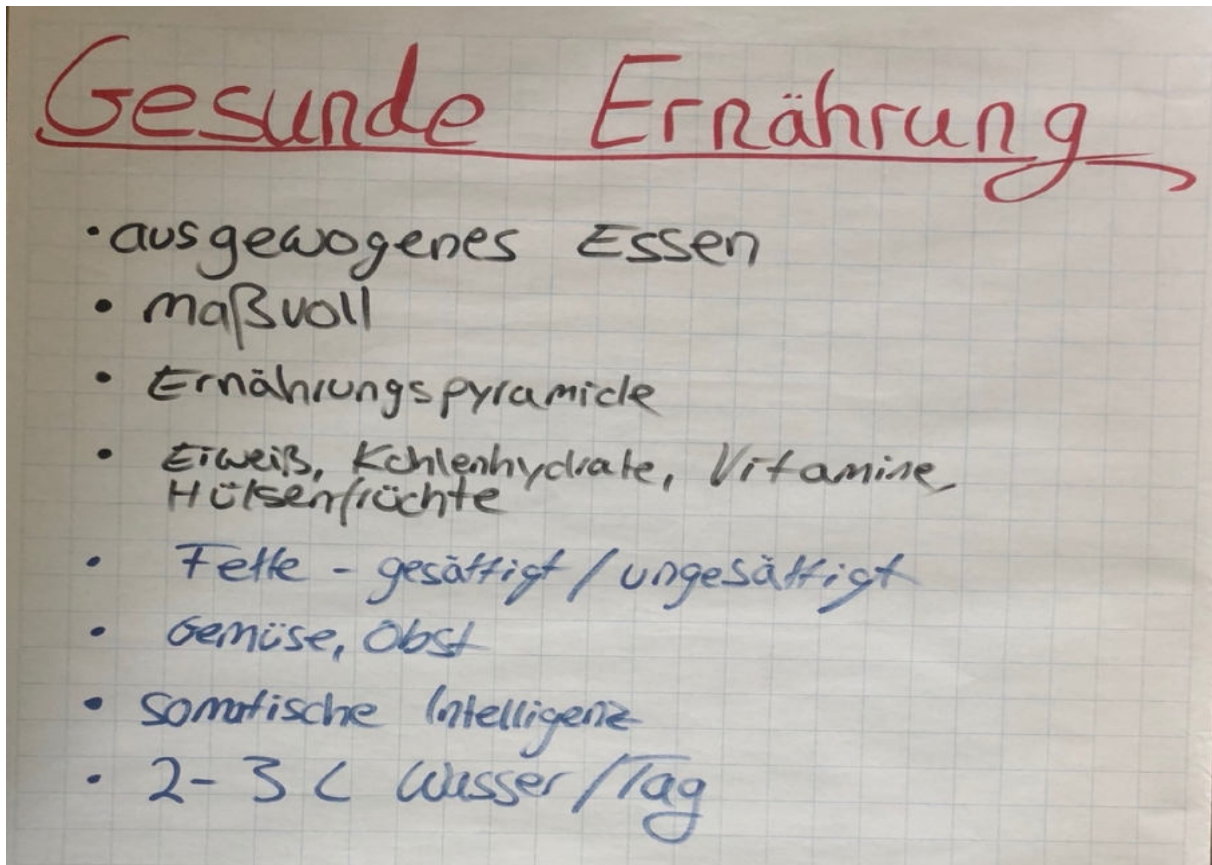 Gesunde Ernährung
• ausgewogenes Essen
• maßvoll
• Ernährungspyramide
• Eiweiß, Kohlenhydrate, Vitamine,
Hülsenfrüchte
• Fette - gesättigt / ungesättigt
• Gemüse, Obst
• somatische Intelligenz
• 2-3 L Wasser / Tag